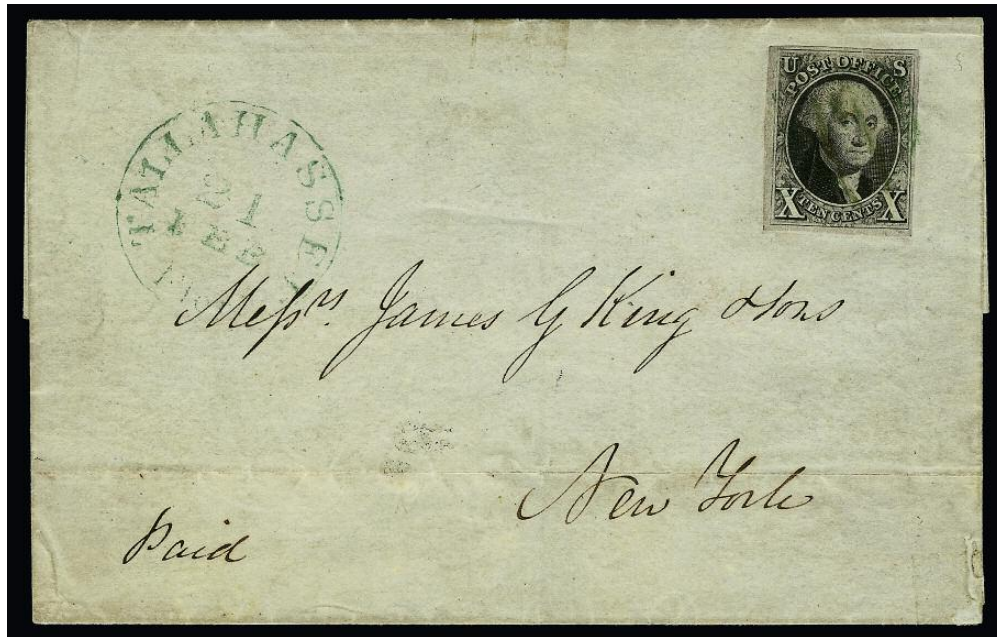 TALLAHASSE
21
FEB
U S
POST OFFICE
X TEN CENTS X
Messrs. James G King & Sons
New York
Paid